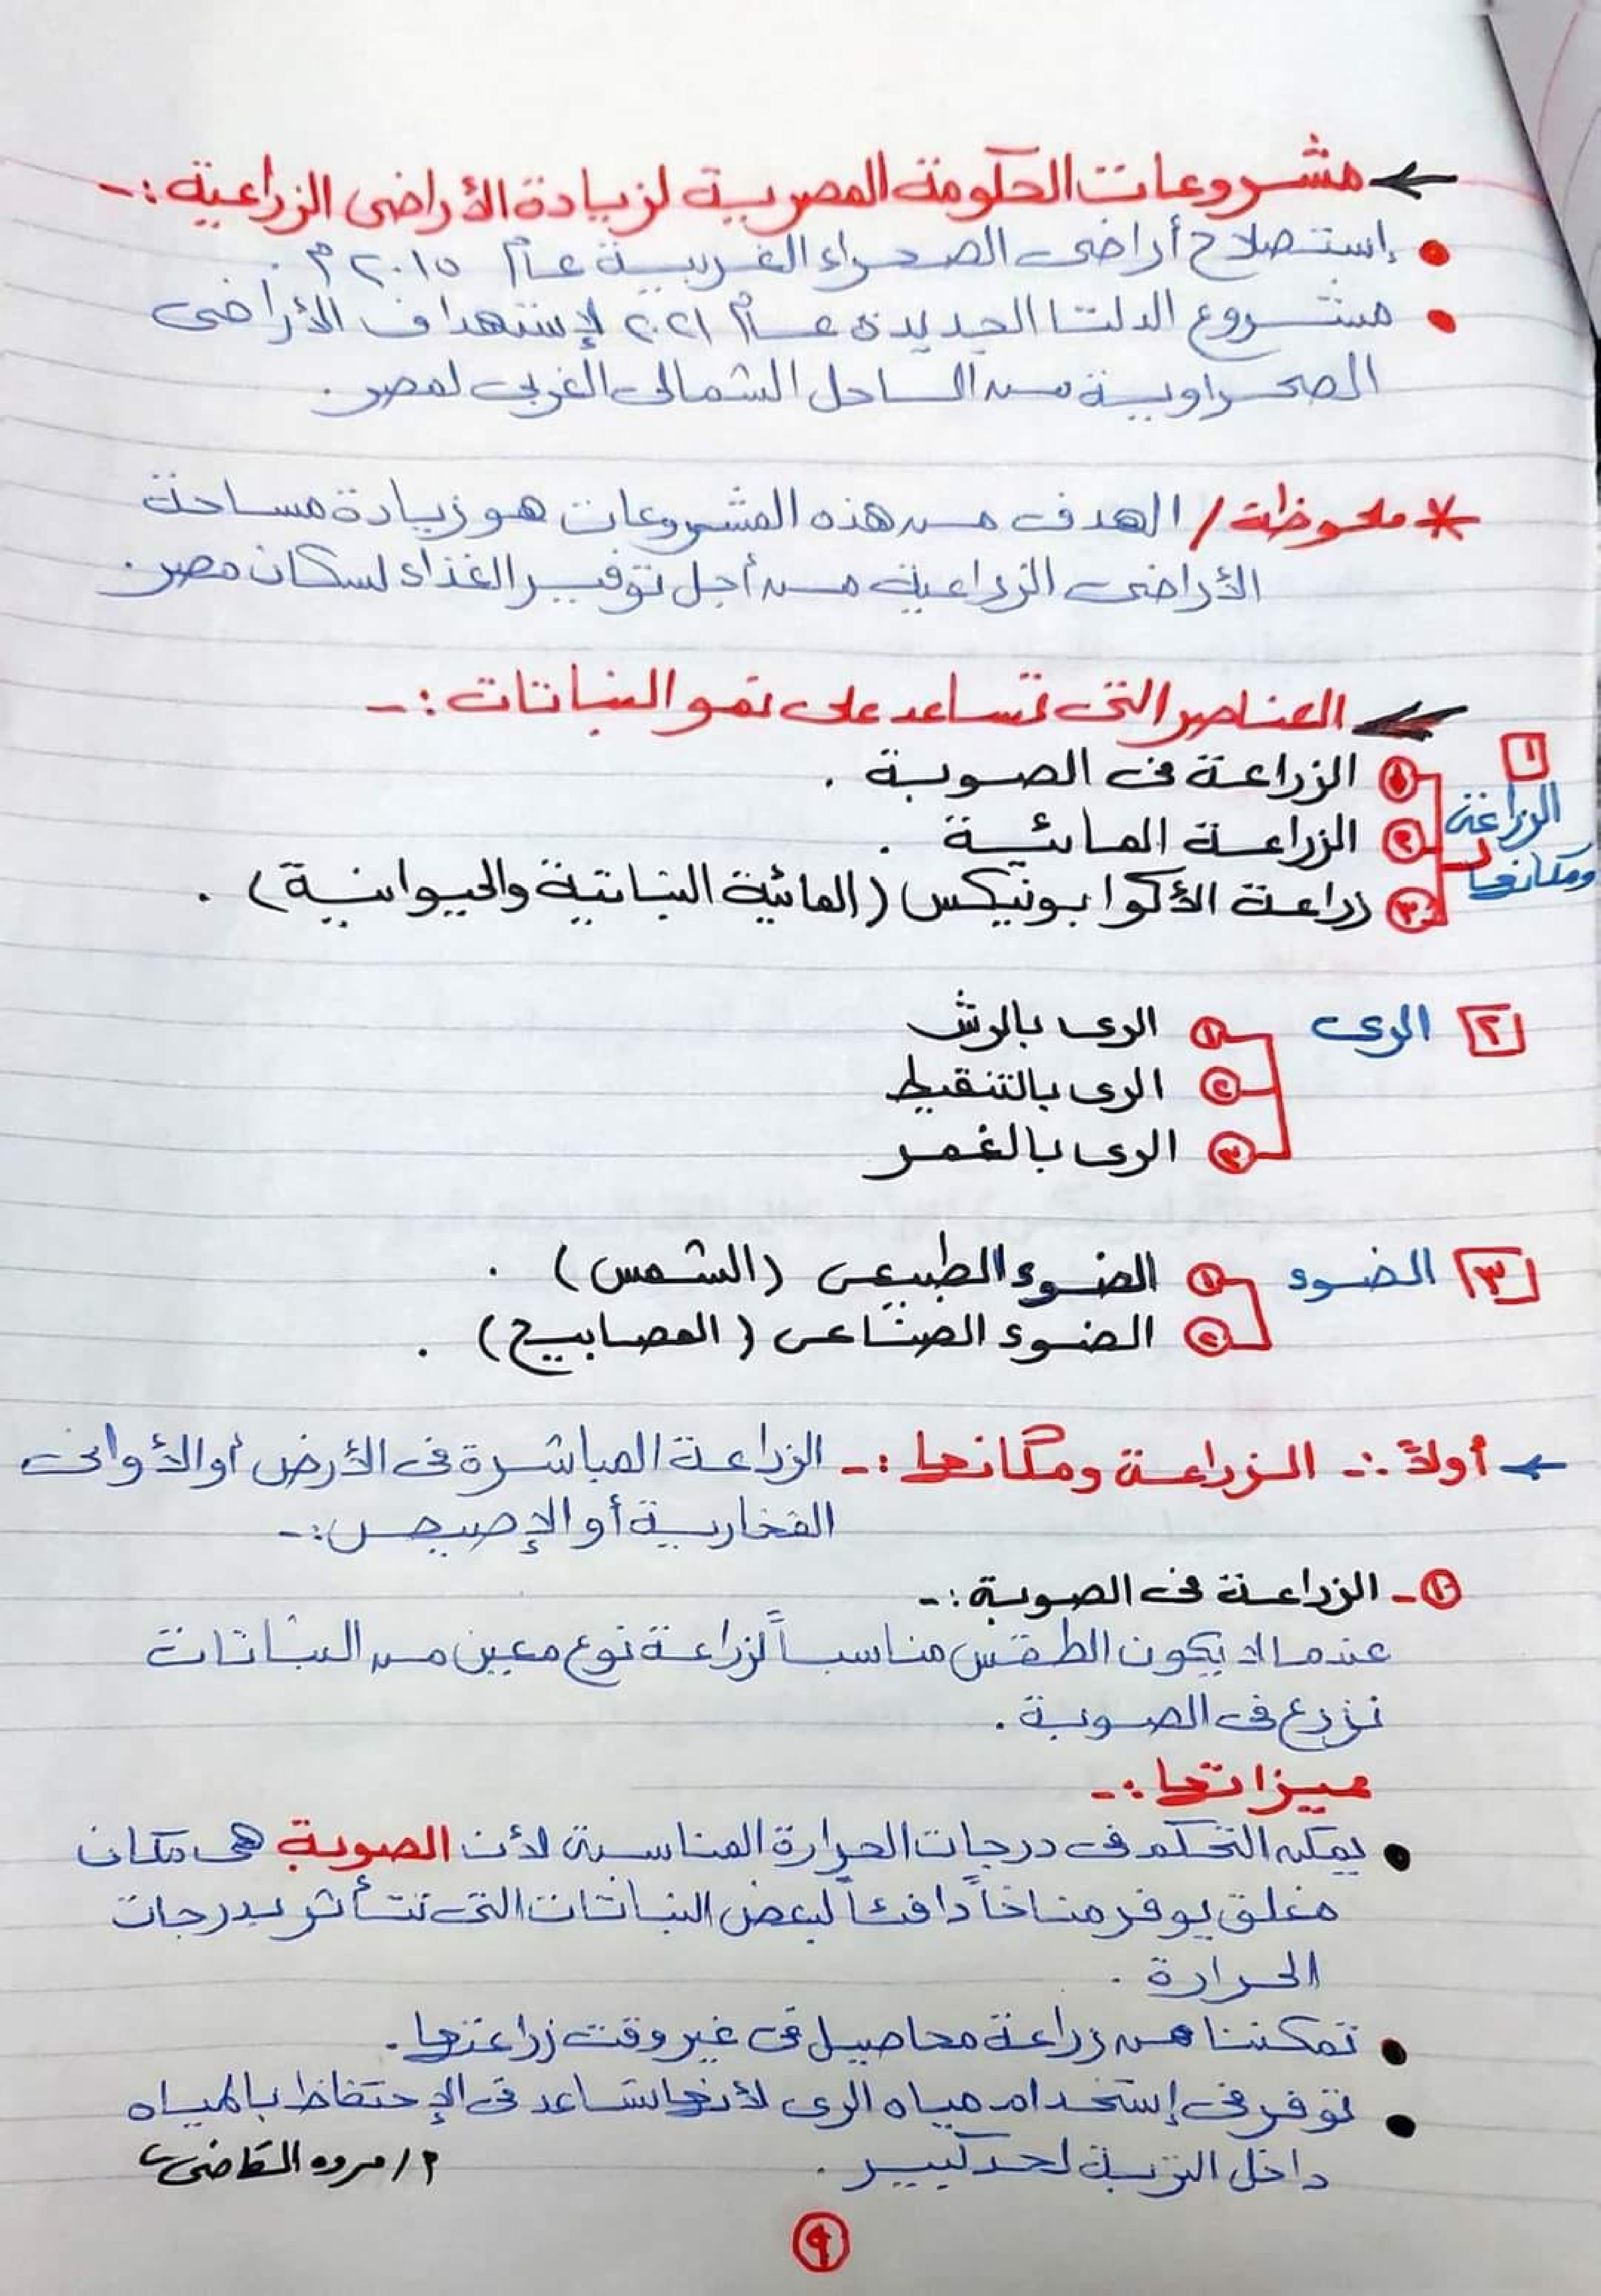 ← مشروعات الحكومة المصرية لزيادة الأراضى الزراعية :-
• إستصلاح أراضى الصحراء الغربية عام ٢٠١٥ م .
• مشروع الدلتا الجديدة عام ٢٠٢١ لإستهداف الأراضى
الصحراوية من الساحل الشمالى الغربى لمصر .
* ملحوظة / الهدف من هذه المشروعات هو زيادة مساحة
الأراضى الزراعية من أجل توفير الغذاء لسكان مصر .
العناصر التى تساعد على نمو النباتات :-
١ الزراعة ومكانها
١ الزراعة فى الصوبة .
٢ الزراعة المائية .
٣ زراعة الأكوابونيكس (المائية النباتية والحيوانية) .
٢ الرى ١ الرى بالرش
٢ الرى بالتنقيط
٣ الرى بالغمر
٣ الضوء ١ الضوء الطبيعى (الشمس) .
٢ الضوء الصناعى (المصابيح) .
← أولاً :- الزراعة ومكانها :- الزراعة المباشرة فى الأرض أو الأوانى
الفخارية أو الإصيص :-
١- الزراعة فى الصوبة :-
عندما لا يكون الطقس مناسباً لزراعة نوع معين من النباتات
نزرع فى الصوبة .
مميزاتها :-
• يمكن التحكم فى درجات الحرارة المناسبة لأن الصوبة هى مكان
مغلق يوفر مناخاً دافئاً لبعض النباتات التى تتأثر بدرجات
الحرارة .
• تمكننا من زراعة محاصيل فى غير وقت زراعتها .
• توفر فى إستخدام مياه الرى لأنها تساعد فى الإحتفاظ بالمياه
داخل التربة لحد كبير .
م / مروه القاضى
٩